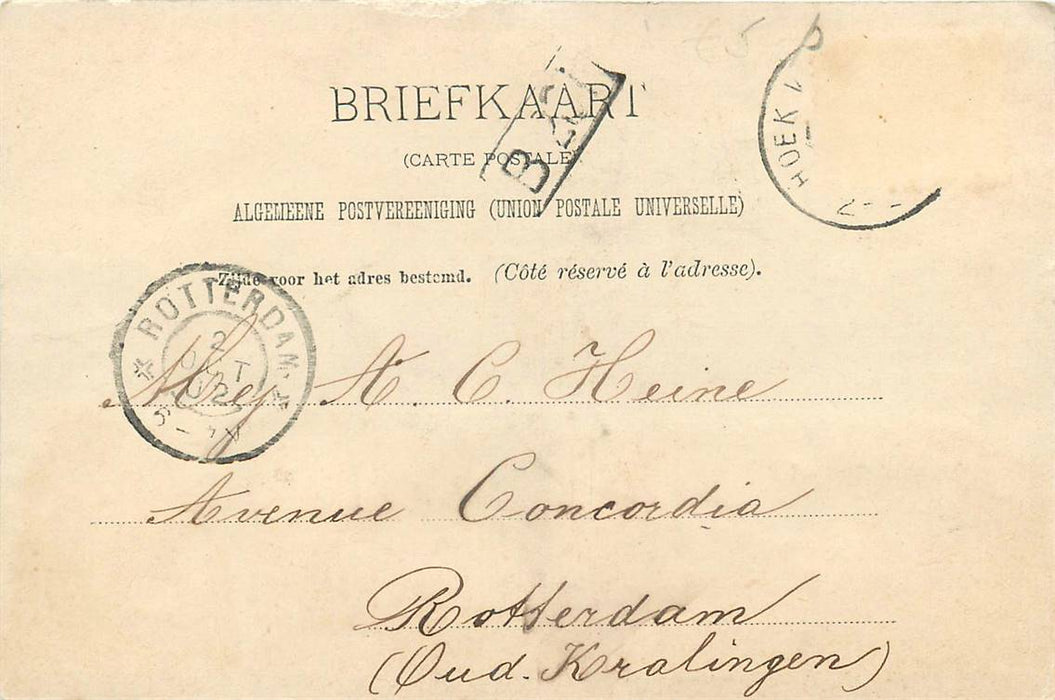 BRIEFKAART
(CARTE POSTALE).
ALGEMEENE POSTVEREENIGING (UNION POSTALE UNIVERSELLE)
Zijde voor het adres bestemd. (Côté réservé à l'adresse).
HOEK
ROTTERDAM
2
OCT
02
Mej A. C. Heine
Avenue Concordia
Rotterdam
(Oud. Kralingen)